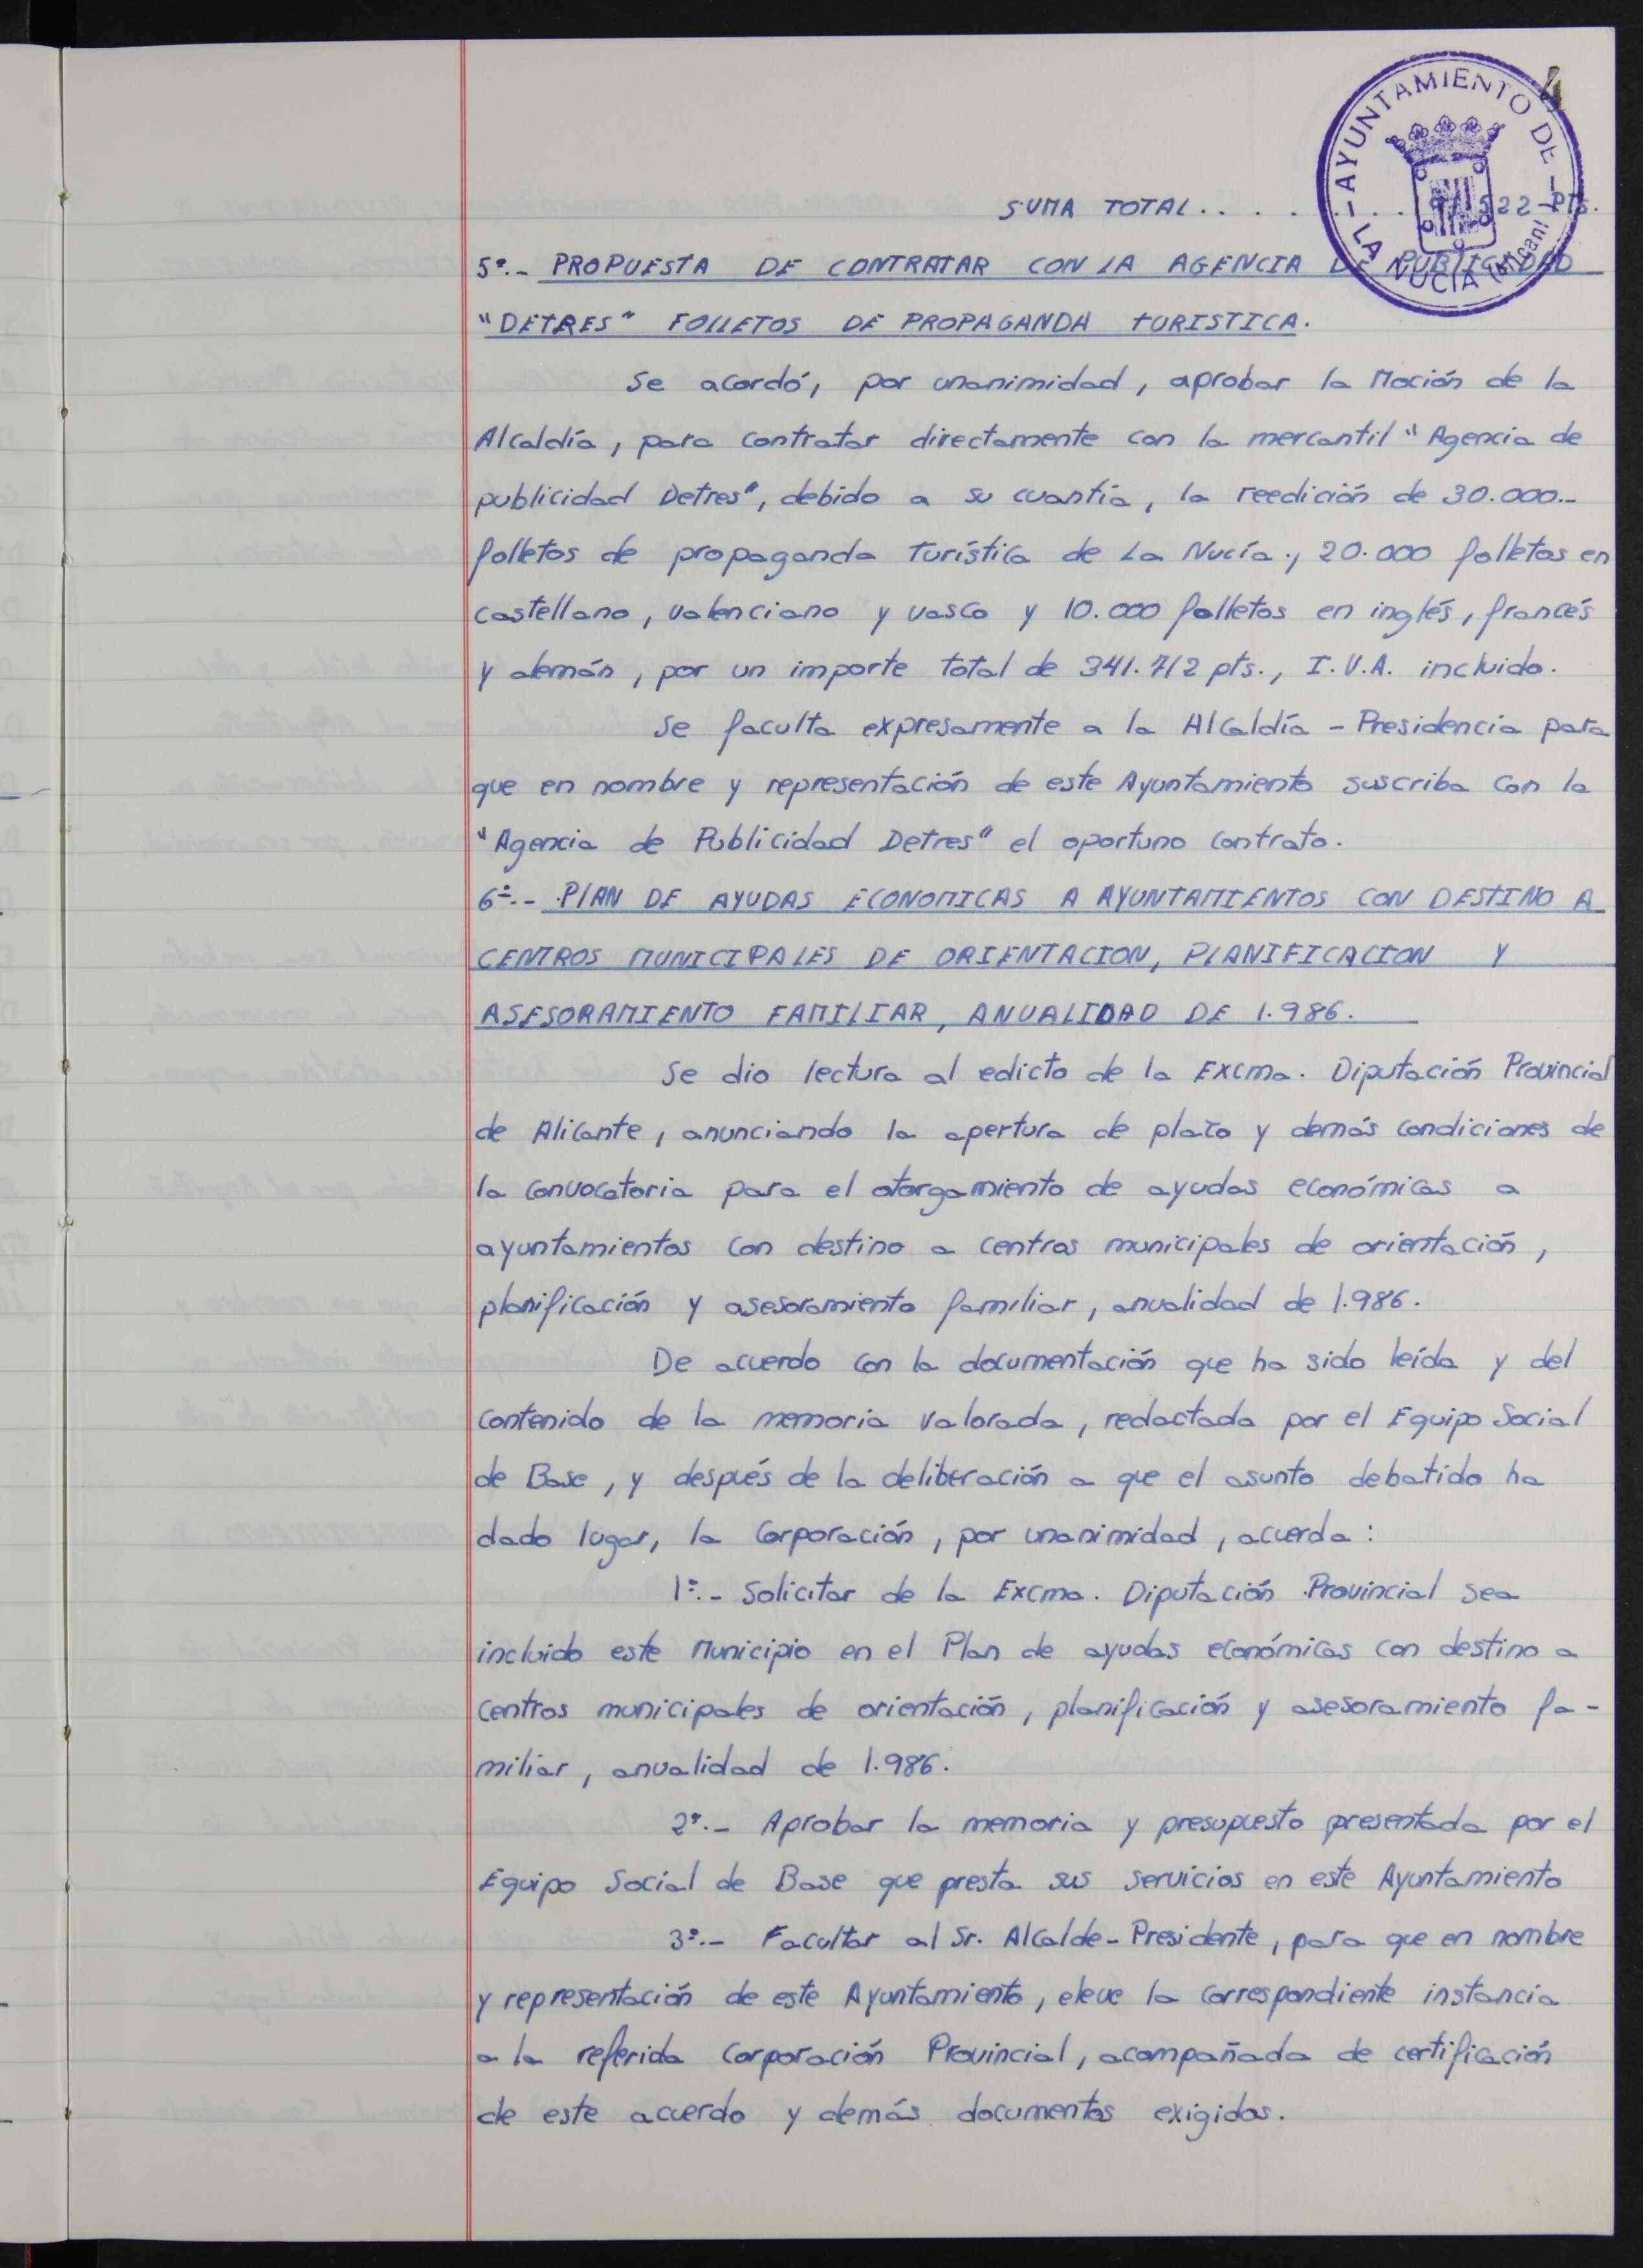 4
- AYUNTAMIENTO DE - LA NUCIA (Alicante)
SUMA TOTAL . . . . . . . 522 - PTS.
5º.- PROPUESTA DE CONTRATAR CON LA AGENCIA DE PUBLICIDAD
"DETRES" FOLLETOS DE PROPAGANDA TURISTICA.
Se acordó, por unanimidad, aprobar la Moción de la
Alcaldía, para contratar directamente con la mercantil "Agencia de
publicidad Detres", debido a su cuantía, la reedición de 30.000.-
folletos de propaganda turística de La Nucía., 20.000 folletos en
castellano, valenciano y vasco y 10.000 folletos en inglés, francés
y alemán, por un importe total de 341.712 pts., I.V.A. incluido.
Se faculta expresamente a la Alcaldía - Presidencia para
que en nombre y representación de este Ayuntamiento suscriba con la
"Agencia de Publicidad Detres" el oportuno contrato.
6º.- PLAN DE AYUDAS ECONOMICAS A AYUNTAMIENTOS CON DESTINO A
CENTROS MUNICIPALES DE ORIENTACION, PLANIFICACION Y
ASESORAMIENTO FAMILIAR, ANUALIDAD DE 1.986.
Se dio lectura al edicto de la Excma. Diputación Provincial
de Alicante, anunciando la apertura de plazo y demás condiciones de
la convocatoria para el otorgamiento de ayudas económicas a
ayuntamientos con destino a centros municipales de orientación,
planificación y asesoramiento familiar, anualidad de 1.986.
De acuerdo con la documentación que ha sido leída y del
contenido de la memoria valorada, redactada por el Equipo Social
de Base, y después de la deliberación a que el asunto debatido ha
dado lugar, la Corporación, por unanimidad, acuerda:
1º.- Solicitar de la Excma. Diputación Provincial sea
incluido este Municipio en el Plan de ayudas económicas con destino a
centros municipales de orientación, planificación y asesoramiento fa-
miliar, anualidad de 1.986.
2º.- Aprobar la memoria y presupuesto presentada por el
Equipo Social de Base que presta sus servicios en este Ayuntamiento
3º.- Facultar al Sr. Alcalde-Presidente, para que en nombre
y representación de este Ayuntamiento, eleve la correspondiente instancia
a la referida Corporación Provincial, acompañada de certificación
de este acuerdo y demás documentos exigidos.